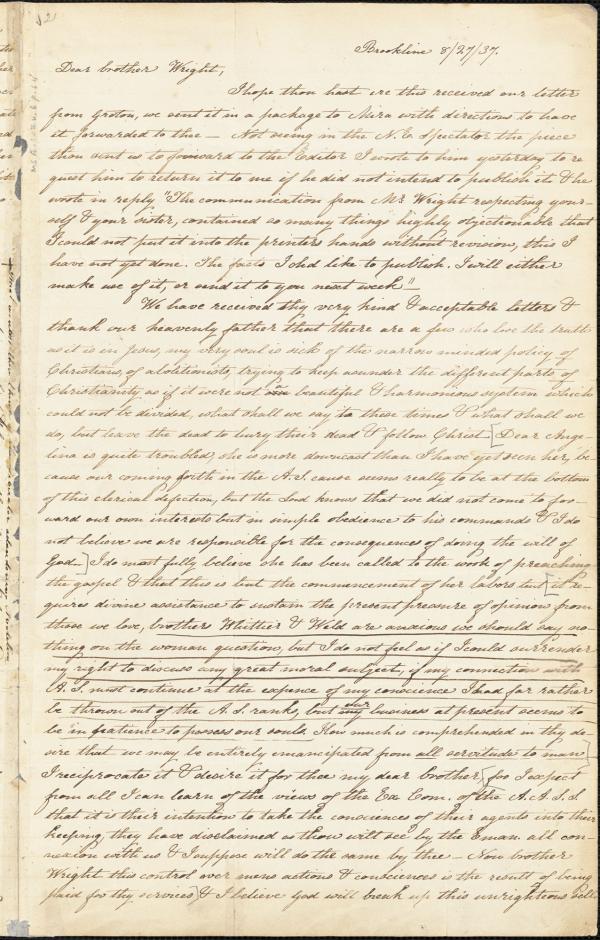 Brookline 8/27/37.
Dear brother Wright,
I hope thou hast ere this received our letter
from Groton, we sent it in a package to Mira with directions to have
it forwarded to thee — Not seeing in the N. E. Spectator the piece
thou sent us to forward to the Editor I wrote to him yesterday to re
quest him to return it to me if he did not intend to publish it & he
wrote in reply "The communication from Mr Wright respecting your-
self & your sister, contained so many things highly objectionable that
I could not put it into the printers hands without revision, this I
have not yet done. The facts I shd like to publish. I will either
make use of it, or send it to you next week"
We have received thy very kind & acceptable letters &
thank our heavenly father that there are a few who love the truth
as it is in Jesus, my very soul is sick of the narrow minded policy of
Christians, of abolitionists, trying to keep asunder the different parts of
Christianity as if it were not a beautiful & harmonious system which
could not be divided, what shall we say to these times & what shall we
do, but leave the dead to bury their dead & follow Christ. [Dear Ange-
lina is quite troubled, she is more downcast than I have yet seen her, be-
cause our coming forth in the A. S. cause seems really to be at the bottom
of this clerical defection, but the Lord knows that we did not come to for-
ward our own interests but in simple obedience to his commands & I do
not believe we are responsible for the consequences of doing the will of
God—] I do most fully believe she has been called to the work of preaching
the gospel & that this is but the commencement of her labors but [it re-
quires divine assistance to sustain the present pressure of opinion from
those we love, brothers Whittier & Weld are anxious we should say no-
thing on the woman question, but I do not feel as if I could surrender
my right to discuss any great moral subject, if my connection with
A. S. must continue at the expence of my conscience I had far rather
be thrown out of the A. S. ranks, but our my business at present seems to
be "in patience to possess our souls. How much is comprehended in thy de-
sire that we may be entirely emancipated from all servitude to man]
I reciprocate it & desire it for thee my dear brother, [for I expect
from all I can learn of the views of the Ex Com. of the A. A. S. S
that it is their intention to take the consciences of their agents into their
keeping, they have disclaimed as thou will see by the Eman. all con-
nexion with us & I suppose will do the same by thee — Now brother
Wright this control over mens actions & consciences is the result of being
paid for thy services] & I believe God will break up this unrighteous